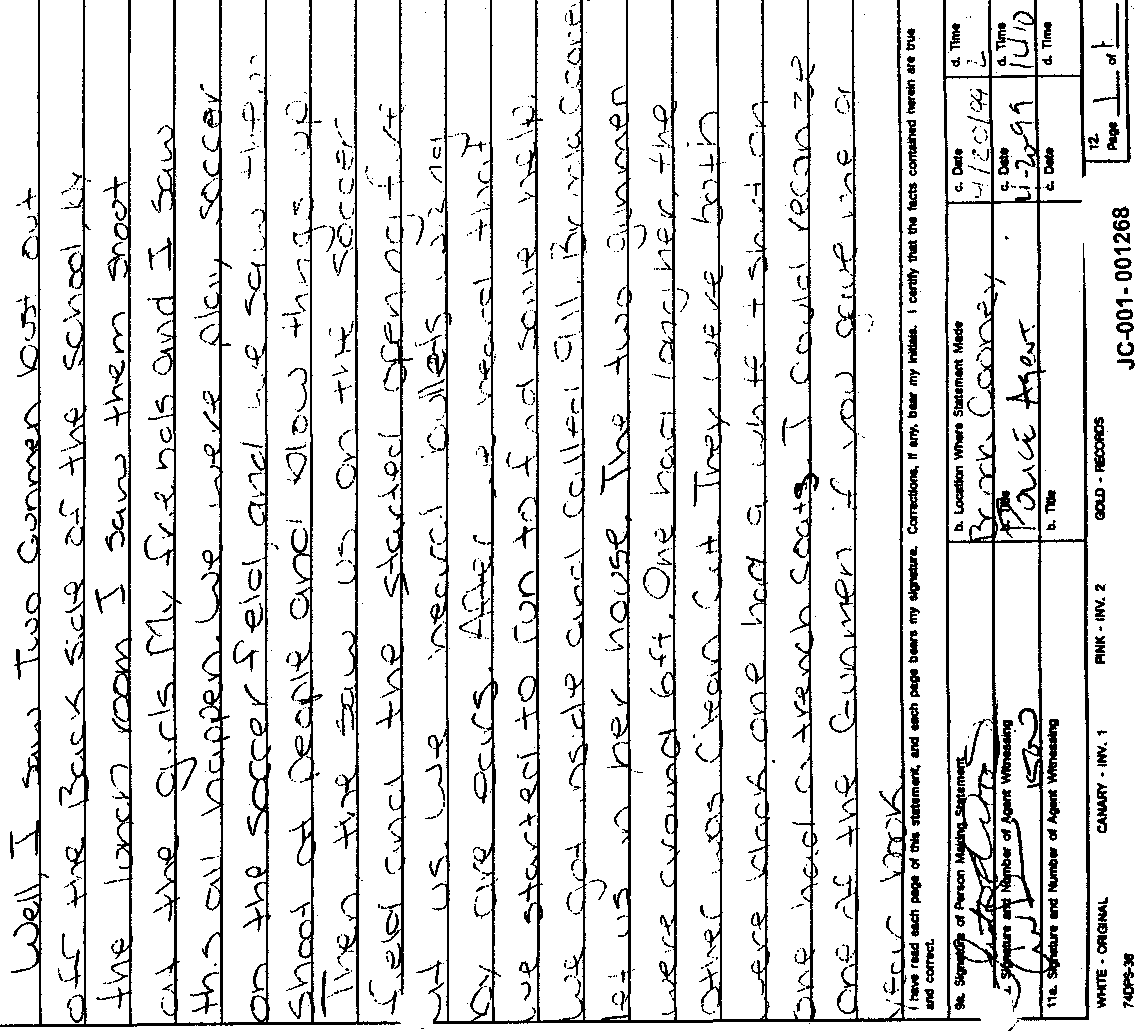 Well, I saw Two Gunmen bust out
off the Back side of the school, by
the lunch room I saw them shoot
at the girls. My friends and I saw
this all happen. we were play soccer
on the soccer feild and we saw them
shoot at people and blow things up.
Then the saw us on the soccer
field and the started opening fire
at us. we heard bullets
by are ears. After we heard that
we started to run to find some help.
we got inside and called 911. Brinna Cooney
let us in her house. The two gunmen
were around 6ft. One had longher, the
other was Clean Cut. They were both
were black one had a white shirt on
one had a trench coats I could recanze
one of the Gunmen if you gave me a
year book
I have read each page of this statement, and each page bears my signature. Corrections, if any, bear my initials. I certify that the facts contained herein are true
and correct.
9a. Signature of Person Making Statement b. Location Where Statement Made c. Date d. Time
Brinn Cooney 4/20/99
Signature and Number of Agent Witnessing Title c. Date d. Time
Police Agent 4-20-99 1410
11a. Signature and Number of Agent Witnessing b. Title c. Date d. Time
12.
Page 1 of 1
WHITE - ORIGINAL CANARY - INV. 1 PINK - INV. 2 GOLD - RECORDS
JC-001-001268
74DPS-36